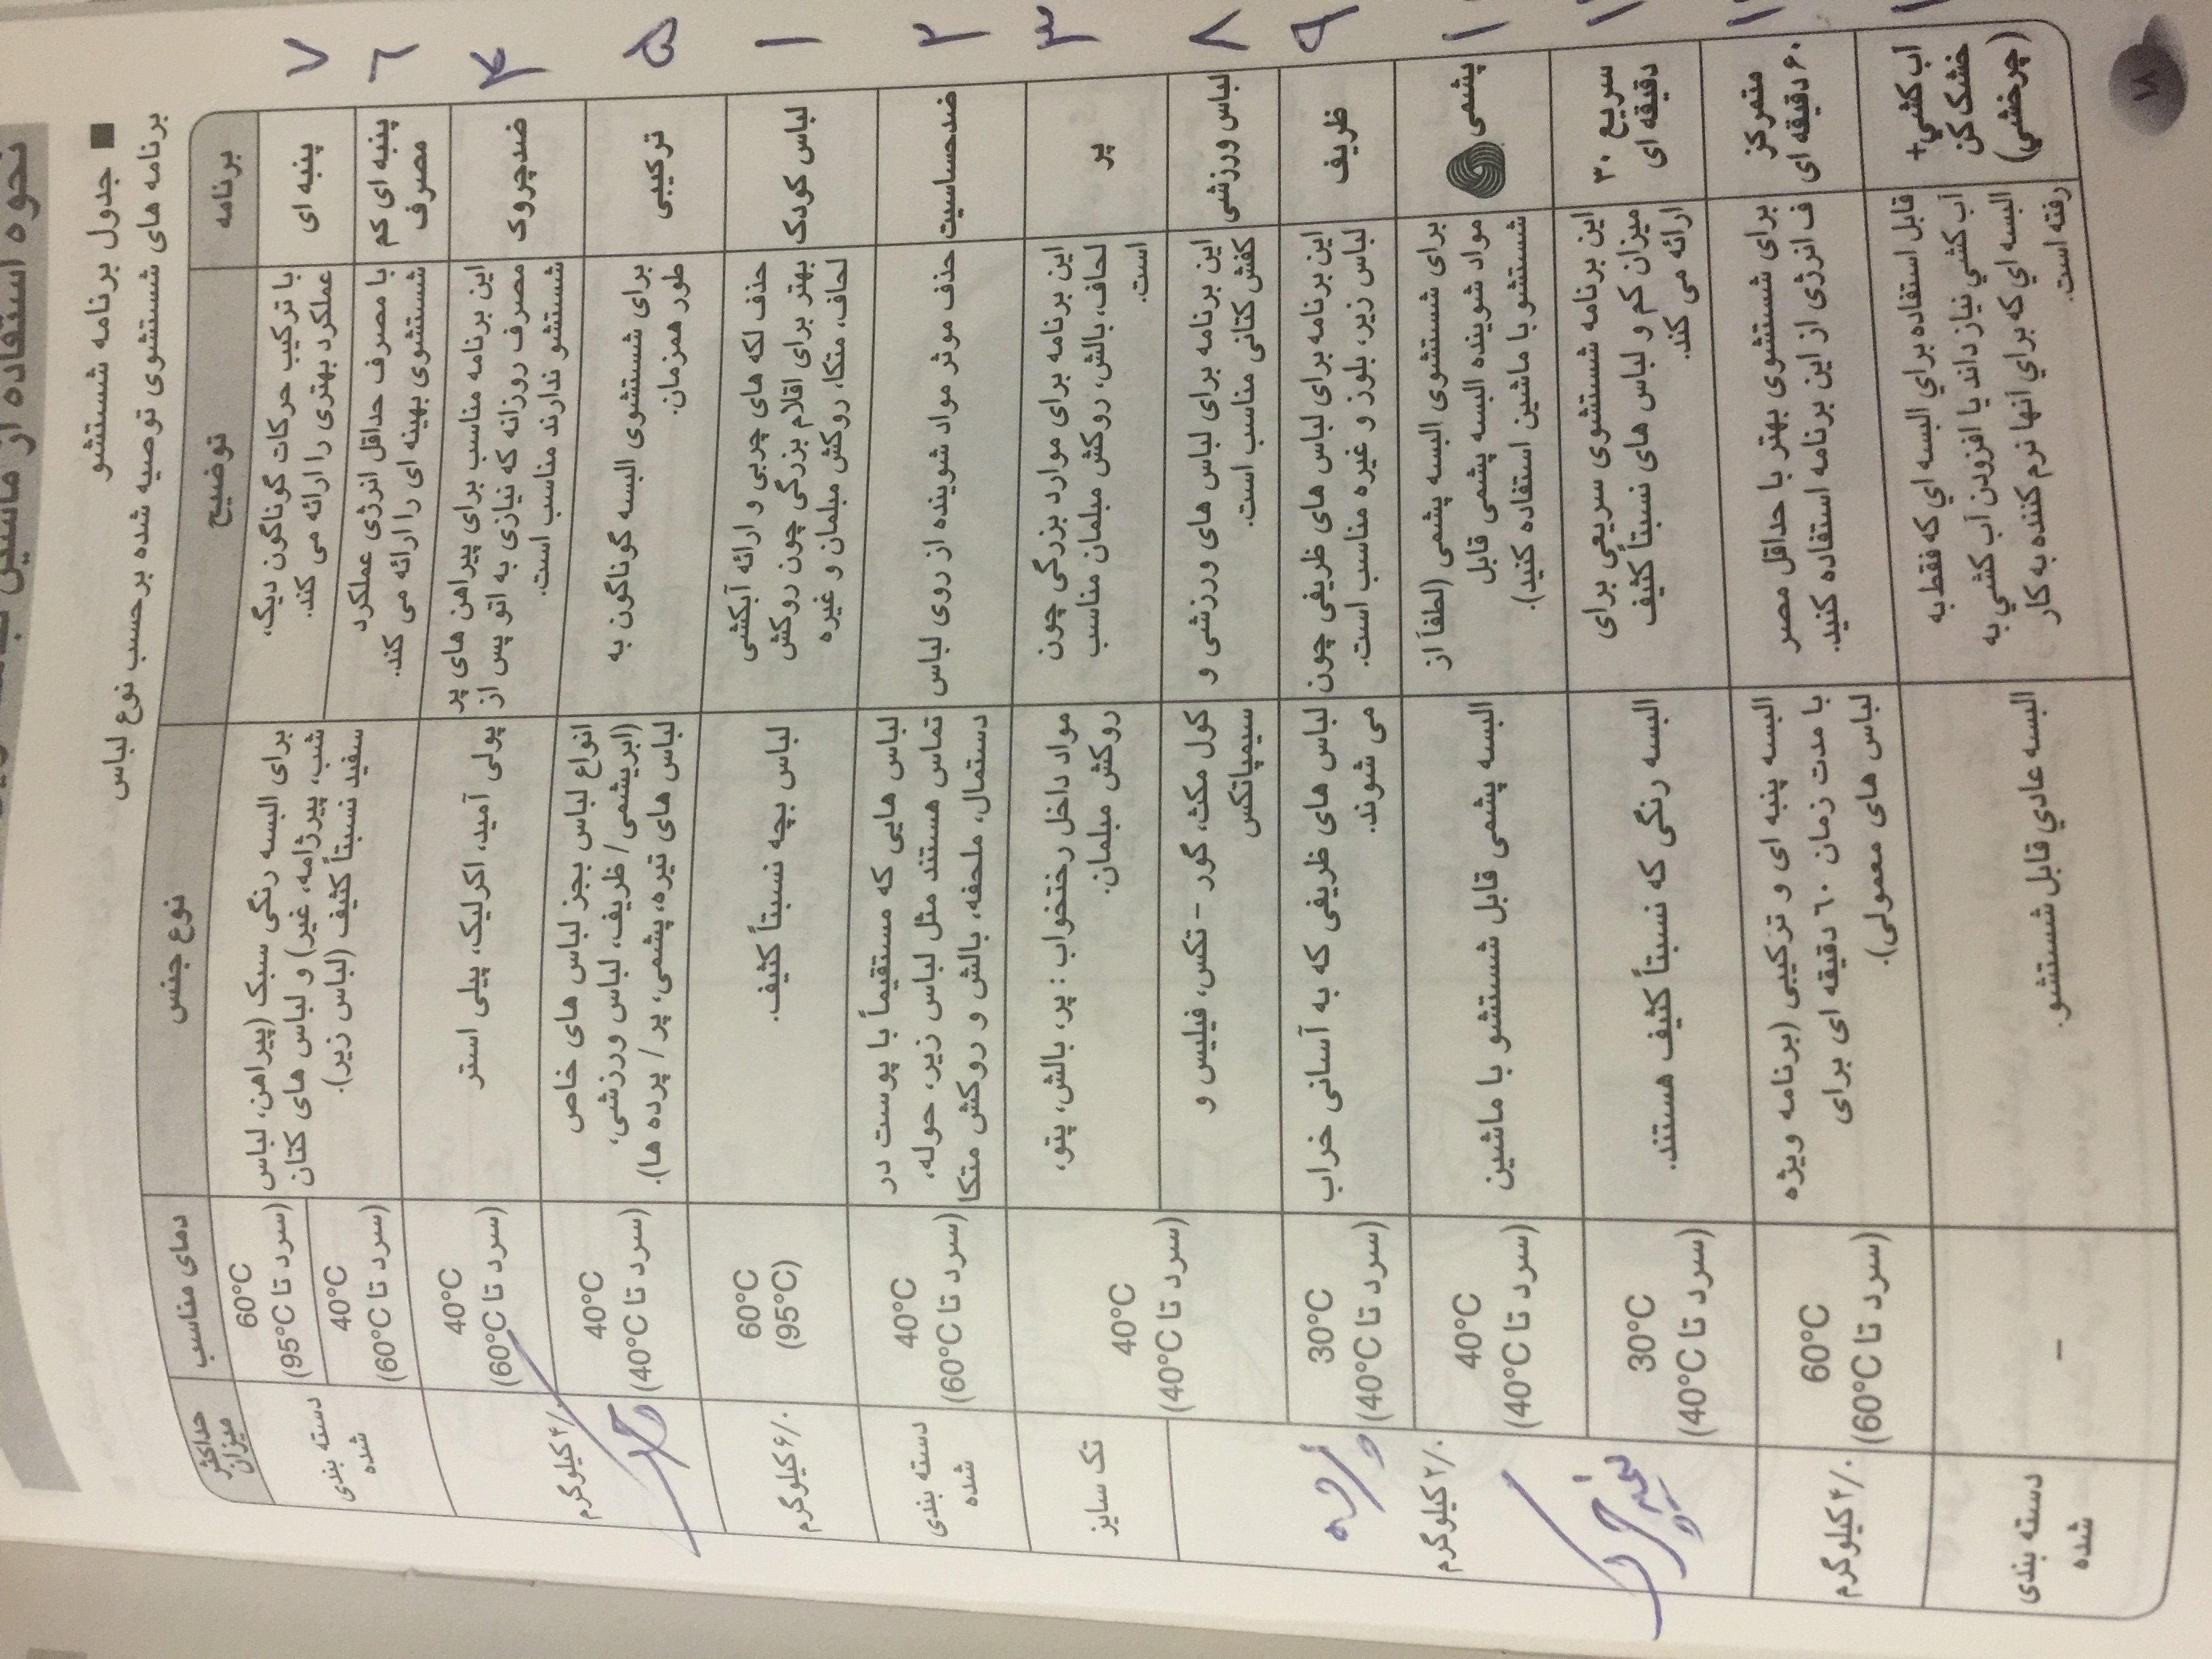 نحوه استفاده از ماشین
■ جدول برنامه شستشو
برنامه های شستشوی توصیه شده برحسب نوع لباس
برنامه
توضیح
نوع جنس
دمای مناسب
حداکثر
میزان
۷
پنبه ای
با ترکیب حرکات گوناگون دیگ،
عملکرد بهتری را ارائه می کند.
برای البسه رنگی سبک (پیراهن، لباس
شب، پیرژامه، غیر) و لباس های کتان
سفید نسبتاً کثیف (لباس زیر).
60°C
(سرد تا 95°C)
دسته بندی
شده
٦
پنبه ای کم
مصرف
با مصرف حداقل انرژی عملکرد
شستشوی بهینه ای را ارائه می کند.
40°C
(سرد تا 60°C)
۴
ضدچروک
این برنامه مناسب برای پیراهن های پر
مصرف روزانه که نیازی به اتو پس از
شستشو ندارند مناسب است.
پولی آمید، اکرلیک، پیلی استر
40°C
(سرد تا 60°C)
۴/۰ کیلوگرم
۵
ترکیبی
برای شستشوی البسه گوناگون به
طور همزمان.
انواع لباس بجز لباس های خاص
(ابریشمی / ظریف، لباس ورزشی،
لباس های تیره، پشمی، پر / پرده ها).
40°C
(سرد تا 40°C)
۱
لباس کودک
حذف لکه های چربی و ارائه آبکشی
بهتر برای اقلام بزرگی چون روکش
لحاف، متکا، روکش مبلمان و غیره
لباس بچه نسبتاً کثیف.
60°C
(95°C)
۶/۰ کیلوگرم
۲
ضدحساسیت
حذف موثر مواد شوینده از روی لباس
لباس هایی که مستقیماً با پوست در
تماس هستند مثل لباس زیر، حوله،
دستمال، ملحفه، بالش و روکش متکا
40°C
(سرد تا 60°C)
دسته بندی
شده
۳
پر
این برنامه برای موارد بزرگی چون
لحاف، بالش، روکش مبلمان مناسب
است.
مواد داخل رختخواب : پر، بالش، پتو،
روکش مبلمان.
40°C
(سرد تا 40°C)
تک سایز
۸
لباس ورزشی
این برنامه برای لباس های ورزشی و
کفش کتانی مناسب است.
کول مکث، گور - تکس، فیلیس و
سیمپاتکس
۲/۰ کیلوگرم
۹
ظریف
این برنامه برای لباس های ظریفی چون
لباس زیر، بلوز و غیره مناسب است.
لباس های ظریفی که به آسانی خراب
می شوند.
30°C
(سرد تا 40°C)
پرده
پشمی
برای شستشوی البسه پشمی (لطفاً از
مواد شوینده البسه پشمی قابل
شستشو با ماشین استفاده کنید).
البسه پشمی قابل شستشو با ماشین
40°C
(سرد تا 40°C)
سریع ۳۰
دقیقه ای
این برنامه شستشوی سریعی برای
میزان کم و لباس های نسبتاً کثیف
ارائه می کند.
البسه رنگی که نسبتاً کثیف هستند.
30°C
(سرد تا 40°C)
متمرکز
۶۰ دقیقه ای
برای شستشوی بهتر با حداقل مصر
ف انرژی از این برنامه استفاده کنید.
البسه پنبه ای و ترکیبی (برنامه ویژه
با مدت زمان ٦٠ دقیقه ای برای
لباس های معمولی).
60°C
(سرد تا 60°C)
۴/۰ کیلوگرم
آب کشي+
خشک کن
(چرخشي)
قابل استفاده براي البسه اي که فقط به
آب کشي نیاز داند یا افزودن آب کشي به
البسه اي که براي انها نرم کننده به کار
رفته است.
البسه عادي قابل شستشو.
–
دسته بندی
شده
۱۸